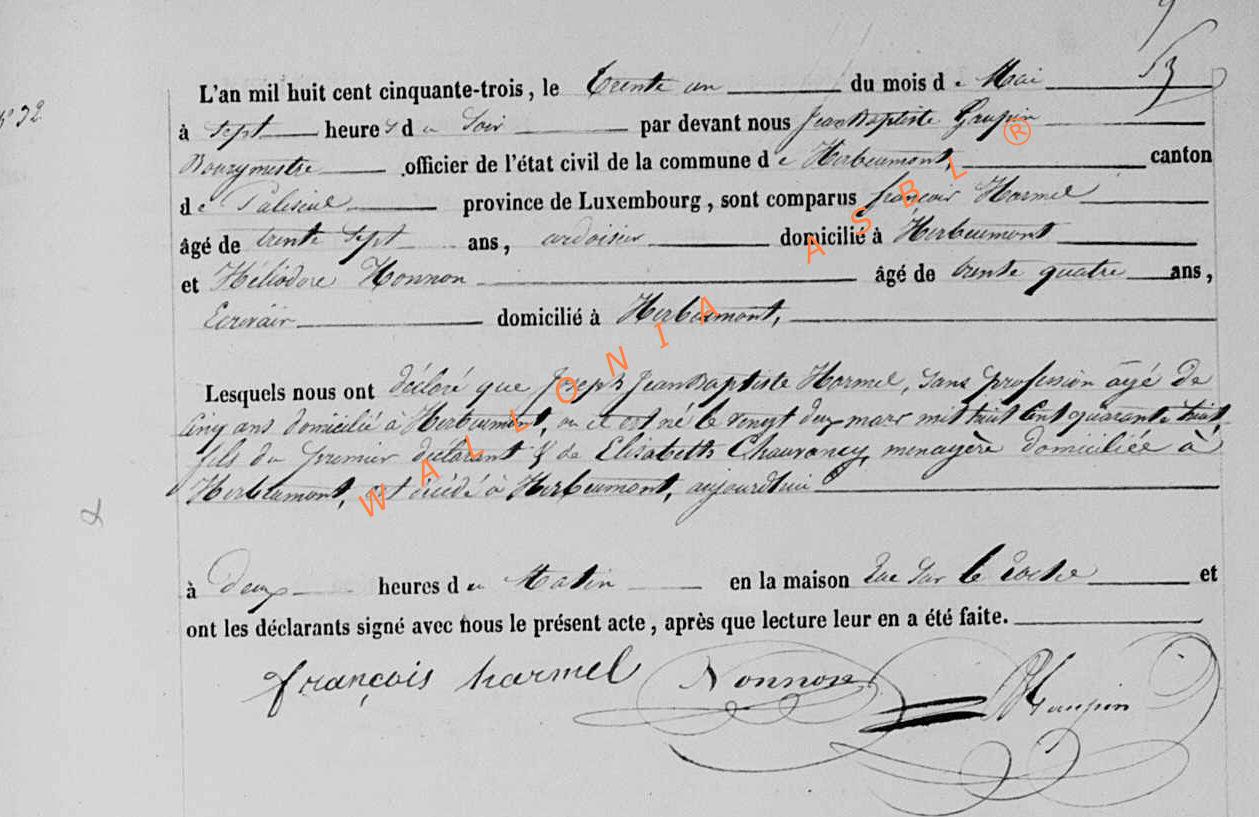 53
N° 32
L'an mil huit cent cinquante-trois, le trente un du mois de Mai
à sept heures du Soir par devant nous Jean Baptiste Gaupin
Bourgmestre officier de l'état civil de la commune de Herbeumont, canton
de Paliseul province de Luxembourg, sont comparus françois Hormel
âgé de trente sept ans, ardoisier domicilié à Herbeumont
et Héliodore Nonnon âgé de trente quatre ans,
Ecrivain domicilié à Herbeumont,
Lesquels nous ont déclaré que Joseph Jean Baptiste Hormel, sans profession âgé de
Cinq ans domicilié à Herbeumont, ou il est né le vingt deux mars mil huit Cent quarante huit
fils du premier déclarant & de Elisabeth Chauvency, menagère domiciliée à
Herbeumont, est décédé à Herbeumont, aujourdhui
à Deux heures du Matin en la maison Rue Sur le Roche et
ont les déclarants signé avec nous le présent acte, après que lecture leur en a été faite.
françois harmel Nonnon Gaupin
WALLONIA ASBL ®